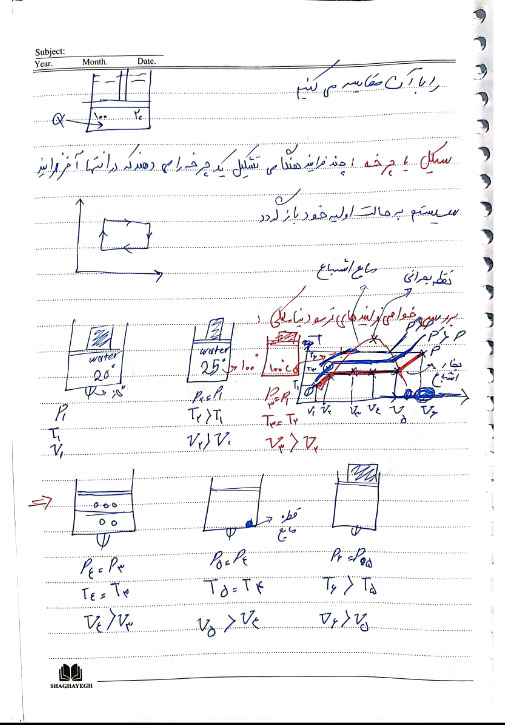 Subject:
Year. Month. Date.
را با آن مقایسه می کنیم
Q ۱۰۰ ۲۰
سیکل یا چرخه : چند فرایند هنگامی تشکیل یک چرخه را می دهند که در انتها آ فرایند
سیستم به حالت اولیه خود باز گردد
مایع اشباع
نقطه بحرانی
بررسی خواص فرایندهای ترمودینامیکی :
water
20°
water
25° → 100°
100°C
T
P
اشباع
P₁
T₁
V₁
P₂=P₁
T₂>T₁
V₂>V₁
P₃=P₂
T₃=T₂
V₃>V₂
V₁ V₂ V₃ V₄ V₅ V₆
⇒
قطره
مایع
P₄=P₃
T₄=T₃
V₄>V₃
P₅=P₄
T₅=T₄
V₅>V₄
P₆=P₅
T₆>T₅
V₆>V₅
SHAGHAYEGH